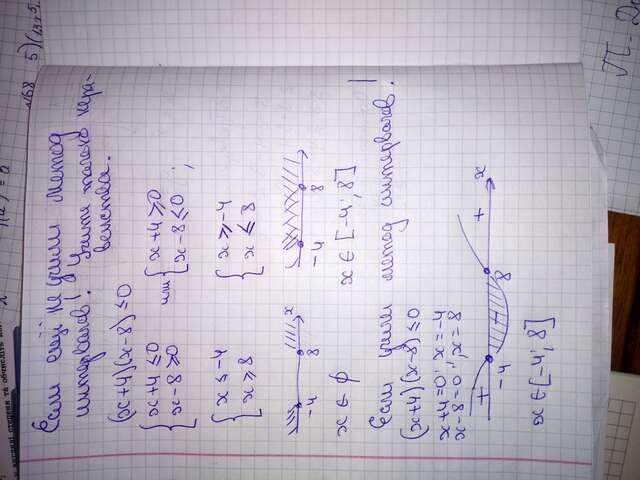 Если ещё не учили метод
интервалов! Учите только нера-
венства.
(x+4)(x-8)≤0
{x+4≤0 или {x+4≥0
{x-8≥0 {x-8≤0 ;
{x≤-4 {x≥-4
{x≥8 {x≤8
-4 8 x -4 8
x∈∅ x∈[-4; 8]
Если учили метод интервалов!
(x+4)(x-8)≤0
x+4=0; x=-4
x-8=0; x=8
+ - + x
-4 8
x∈[-4; 8]
№68 5)